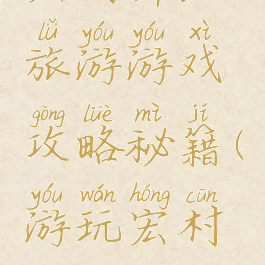 lǚ yóu yóu xì
旅游游戏
gōng lüè mì jí
攻略秘籍(
yóu wán hóng cūn
游玩宏村